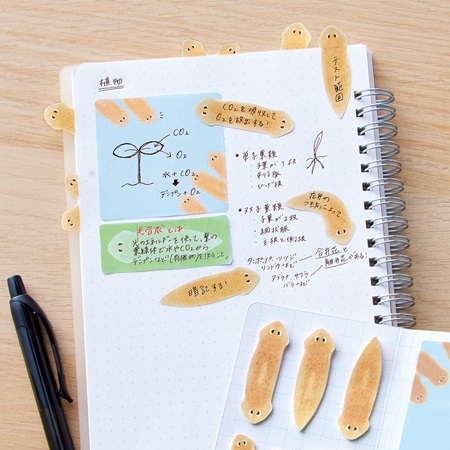 植物
テスト範囲
CO₂を吸収して
O₂を放出する!
CO₂
O₂
水+CO₂
デンプン+O₂
光合成とは
光のエネルギーを使って、葉の
葉緑体で水やCO₂から
デンプンなど(有機物)を作ること。
暗記する!
・単子葉類
子葉が1枚
平行脈
ひげ根
・双子葉類
子葉が2枚
網状脈
主根と側根
花弁の
つき方によって
タンポポ、ツツジ
など
合弁花と
離弁花がある!
アブラナ、サクラ
バラなど